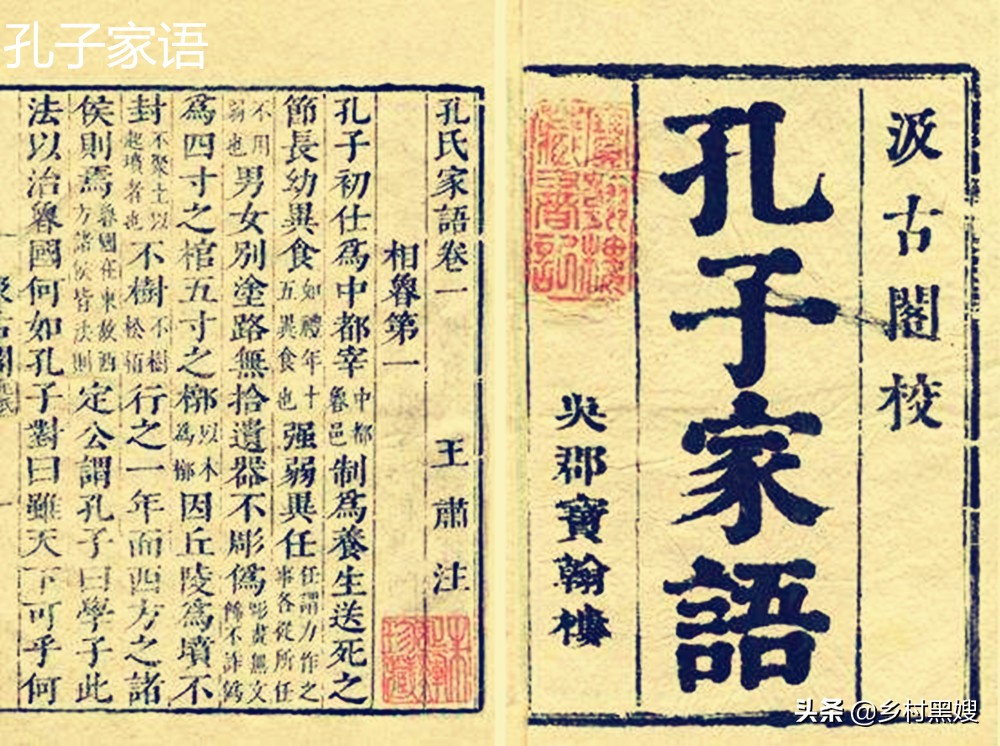 孔子家语
汲古閣校
孔子家語
吳郡寶翰樓
孔氏家語卷一 王肅注
相魯第一
孔子初仕爲中都宰中都魯邑制爲養生送死之
節長幼異食如禮年十五異食也强弱異任任謂力作之事各從所任
不用弱也男女別塗路無拾遺器不彫僞彫畫無文飾不詐僞
爲四寸之棺五寸之槨以木爲槨因丘陵爲墳不
封不聚土以起墳者也不樹不樹松栢行之一年而西方之諸
侯則焉魯國在東故西方諸侯皆法則定公謂孔子曰學子此
法以治魯國何如孔子對曰雖天下可乎何
头条 @乡村黑嫂